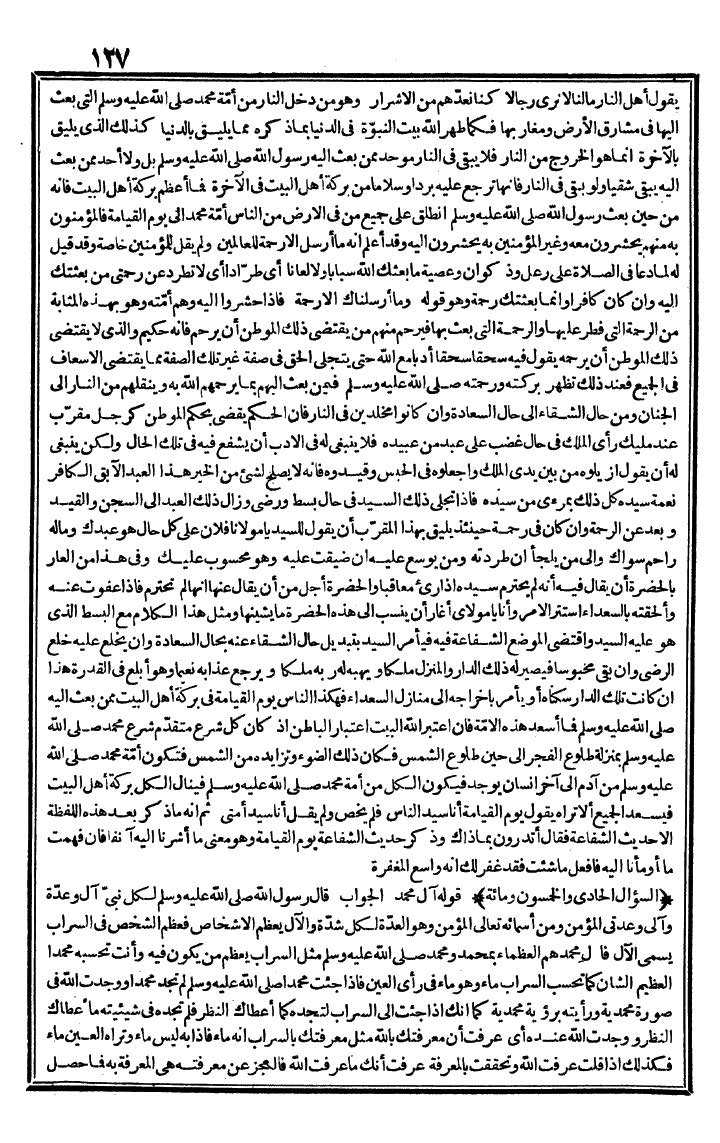 ١٢٧
يقول أهل النار مالنا لا نرى رجالا كنا نعدّهم من الاشرار وهو من دخل النار من أمّة محمد صلى الله عليه وسلم التى بعث
اليها فى مشارق الأرض ومغاربها فكما طهر الله بيت النبوّة فى الدنيا بماذ كره مما يليق بالدنيا كذلك الذى يليق
بالآخرة انما هو الخروج من النار فلا يبقى فى النار موحد ممن بعث اليه رسول الله صلى الله عليه وسلم بل ولا أحد ممن بعث
اليه يبقى شقيا ولو بقى فى النار فانها ترجع عليه بردا وسلاما من بركة أهل البيت فى الآخرة فما أعظم بركة أهل البيت فانه
من حين بعث رسول الله صلى الله عليه وسلم انطلق على جميع من فى الارض من الناس أمّة محمد الى يوم القيامة فالمؤمنون
به منهم يحشرون معه وغير المؤمنين به يحشرون اليه وقد أعلم انه ما أرسل الا رحمة للعالمين ولم يقل للمؤمنين خاصة وقد قيل
له لما دعا فى الصلاة على رعل وذ كوان وعصية ما بعثك الله سبابا ولا لعانا أى طرّادا أى لا تطرد عن رحمتى من بعثتك
اليه وان كان كافرا وانما بعثتك رحمة وهو قوله وما أرسلناك الا رحمة فاذا حشروا اليه وهم أمّته وهو بهذه المثابة
من الرحمة التى فطر عليها والرحمة التى بعث بها فيرحم منهم من يقتضى ذلك الموطن أن يرحم فانه حكيم والذى لا يقتضى
ذلك الموطن أن يرحمه يقول فيه سحقا سحقا أدبا مع الله حتى يتجلى الحق فى صفة غير تلك الصفة مما يقتضى الاسعاف
فى الجميع فعند ذلك تظهر بركته ورحمته صلى الله عليه وسلم فيمن بعث اليهم بما يرحمهم الله به وينقلهم من النار الى
الجنان ومن حال الشقاء الى حال السعادة وان كانوا مخلدين فى النار فان الحكم يقضى بحكم الموطن كرجل مقرّب
عند مليك رأى الملك فى حال غضب على عبد من عبيده فلا ينبغى له فى الادب أن يشفع فيه فى تلك الحال ولكن ينبغى
له أن يقول ازياوه من بين يدى الملك واجعلوه فى الحبس وقيدوه فانه لا يصلح لشئ من الخير هذا العبد الآبق الكافر
نعمة سيده كل ذلك بمرءى من سيده فاذا تجلى ذلك السيد فى حال بسط ورضى وزال ذلك العبد الى السجن والقيد
وبعد عن الرحمة وان كان فى رحمة حينئذ يليق بهذا المقرّب أن يقول للسيد يا مولانا فلان على كل حال هو عبدك وماله
راحم سواك والى من يلجأ ان طردته ومن يوسع عليه ان ضيقت عليه وهو محسوب عليك وفى هذا من العار
بالحضرة أن يقال فيه أنه لم يحترم سيده اذا رئ معاقبا والحضرة أجل من أن يقال عنها انها لم تحترم فاذا عفوت عنه
وألحقته بالسعداء استتر الامر وأنا يا مولاى أغار أن ينسب الى هذه الحضرة ما يشينها ومثل هذا الكلام مع البسط الذى
هو عليه السيد واقتضى الموضع الشفاعة فيه فيأمر السيد بتبديل حال الشقاء عنه بحال السعادة وان يخلع عليه خلع
الرضى وان بقى محبوسا فيصير له ذلك الدار والمنزل ملكا ويهبه له ربه ملكا ويرجع عذابه نعيما وهو أبلغ فى القدرة هذا
ان كانت تلك الدار سكناه أو يأمر باخراجه الى منازل السعداء فهكذا الناس يوم القيامة فى بركة أهل البيت ممن بعث اليه
صلى الله عليه وسلم فما أسعد هذه الامّة فان اعتبر الله البيت اعتبار الباطن اذ كان كل شرع متقدّم شرع محمد صلى الله
عليه وسلم بمنزلة طلوع الفجر الى حين طلوع الشمس فكان ذلك الضوء وتزايده من الشمس فتكون أمّة محمد صلى الله
عليه وسلم من آدم الى آخر انسان يوجد فيكون الكل من أمة محمد صلى الله عليه وسلم فينال الكل بركة أهل البيت
فيسعد الجميع ألا تراه يقول يوم القيامة أنا سيد الناس فلم يخص ولم يقل أنا سيد أمتى ثم انه ماذ كر بعد هذه اللفظة
الا حديث الشفاعة فقال أتدرون بماذاك وذ كر حديث الشفاعة يوم القيامة وهو معنى ما أشرنا اليه آنفا فان فهمت
ما أومأنا اليه فافعل ما شئت فقد غفر لك انه واسع المغفرة
﴿السؤال الحادى والخمسون ومائة﴾ قوله آل محمد الجواب قال رسول الله صلى الله عليه وسلم لكل نبىّ آل وعدّة
وآلى وعدتى المؤمن ومن أسمائه تعالى المؤمن وهو العدّة لكل شدّة والآل يعظم الاشخاص فعظم الشخص فى السراب
يسمى الآل فا ل محمد هم العظماء بمحمد ومحمد صلى الله عليه وسلم مثل السراب يعظم من يكون فيه وأنت تحسبه محمدا
العظيم الشان كما تحسب السراب ماء وهو ماء فى رأى العين فاذا جئت محمدا صلى الله عليه وسلم لم تجد محمدا ووجدت الله فى
صورة محمدية ورأيته برؤية محمدية كما انك اذا جئت الى السراب لتجده كما أعطاك النظر فلم تجده فى شيئيته ما أعطاك
النظر ووجدت الله عنده أى عرفت أن معرفتك بالله مثل معرفتك بالسراب انه ماء فاذا به ليس ماء وتراه العين ماء
فكذلك اذا قلت عرفت الله وتحققت بالمعرفة عرفت أنك ما عرفت الله فالعجز عن معرفته هى المعرفة به فما حصل